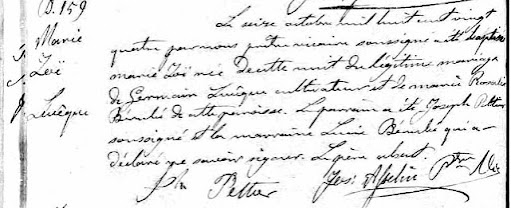 B. 159
Marie
Zoë
Levêque
Le seize octobre mil huit cent vingt
quatre par nous prêtre vicaire soussigné a été baptisée
marie Zoë née de cette nuit du légitime mariage
de Germain Levêque cultivateur et de marie Rosalie
Bérubé de cette paroisse. Le parrain a été Joseph Peltier
soussigné et la marraine Lucie Bérubé qui a
déclaré ne savoir signer. Le père absent.
Peltier
Jos: Asselin Ptre Vic